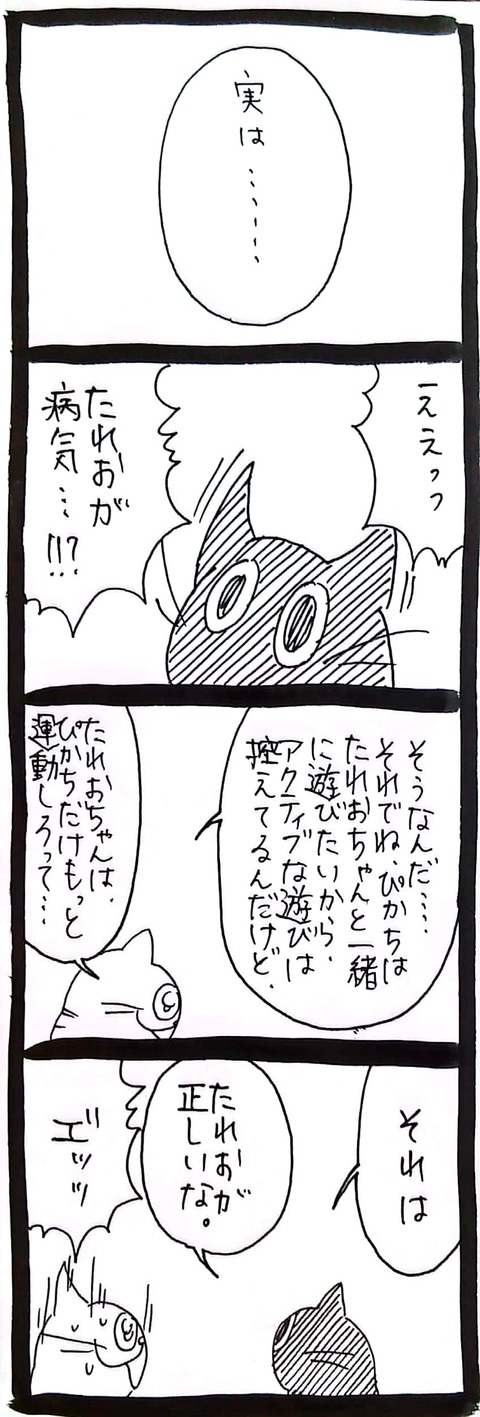 実は……
ええっっ
たれおが
病気…!!?
そうなんだ…
それでね、ぴかちは
たれおちゃんと一緒
に遊びたいから、
アクティブな遊びは
控えてるんだけど、
たれおちゃんは、
ぴかちだけもっと
運動しろって…
それは
たれおが
正しいな。
エ゛ッッッ